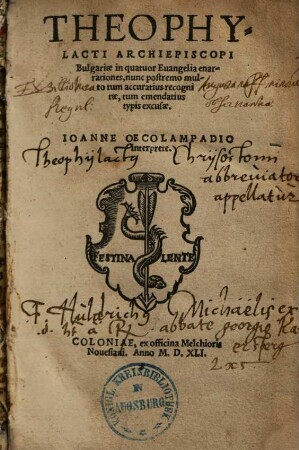 THEOPHY-
LACTI ARCHIEPISCOPI
Bulgariæ in quatuor Euangelia enar-
rationes, nunc postremo mul-
to tum accuratius recogni
tæ, tum emendatius
typis excusæ.
IOANNE OECOLAMPADIO
interprete.
Theophylactus Chrysostomi
abbreviator
appellatur
FESTINA LENTE
F. Huldrich Michaelis ex
abbate georgio
COLONIAE, ex officina Melchioris
Nouesiani. Anno M. D. XLI.
KÖNIGL. KREISBIBLIOTHEK
IN
AUGSBURG